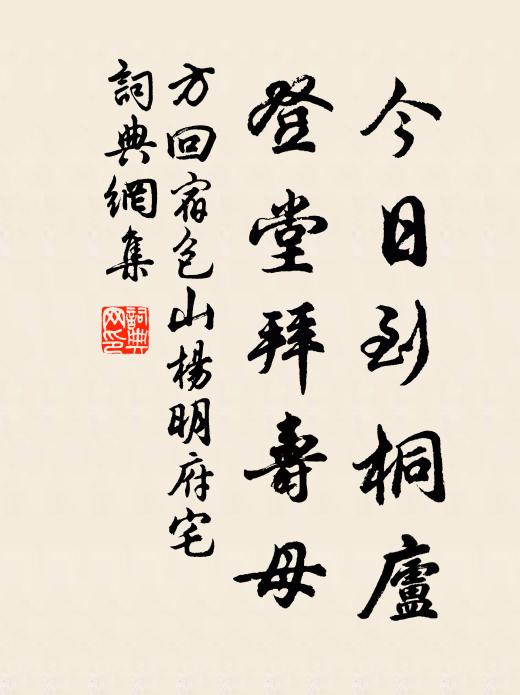 今日到桐廬
登堂拜壽母
方回宿包山楊明府宅
詞典網集
詞典网印